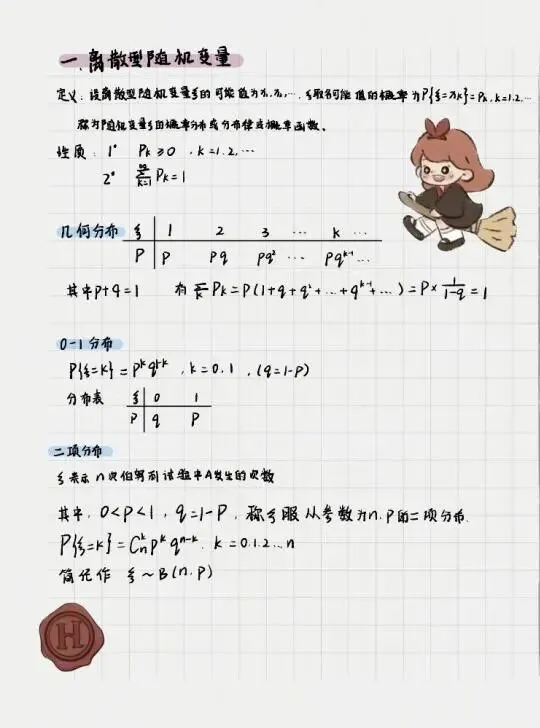 一.离散型随机变量
定义:设离散型随机变量ξ的可能值为x₁,x₂,…,ξ取各可能值的概率为P{ξ=xₖ}=Pₖ,k=1.2,…
称为随机变量ξ的概率分布或分布律或概率函数。
性质:1° Pₖ≥0 ,k=1.2,…
2° ∑_{k=1}^{∞} Pₖ=1
几何分布 ξ 1 2 3 … k …
P P Pq Pq² … Pq^{k-1} …
其中P+q=1 有∑_{k} Pₖ=P(1+q+q²+…+q^{k-1}+…)=P×\frac{1}{1-q}=1
0-1分布
P{ξ=k}=P^k q^{1-k} ,k=0.1 ,(q=1-P)
分布表 ξ 0 1
P q P
二项分布
ξ表示n次伯努利试验中A发生的次数
其中,0<P<1,q=1-P,称ξ服从参数为n.P的二项分布.
P{ξ=k}=C_n^k P^k q^{n-k}. k=0.1.2…n
简记作 ξ~B(n.P)
H